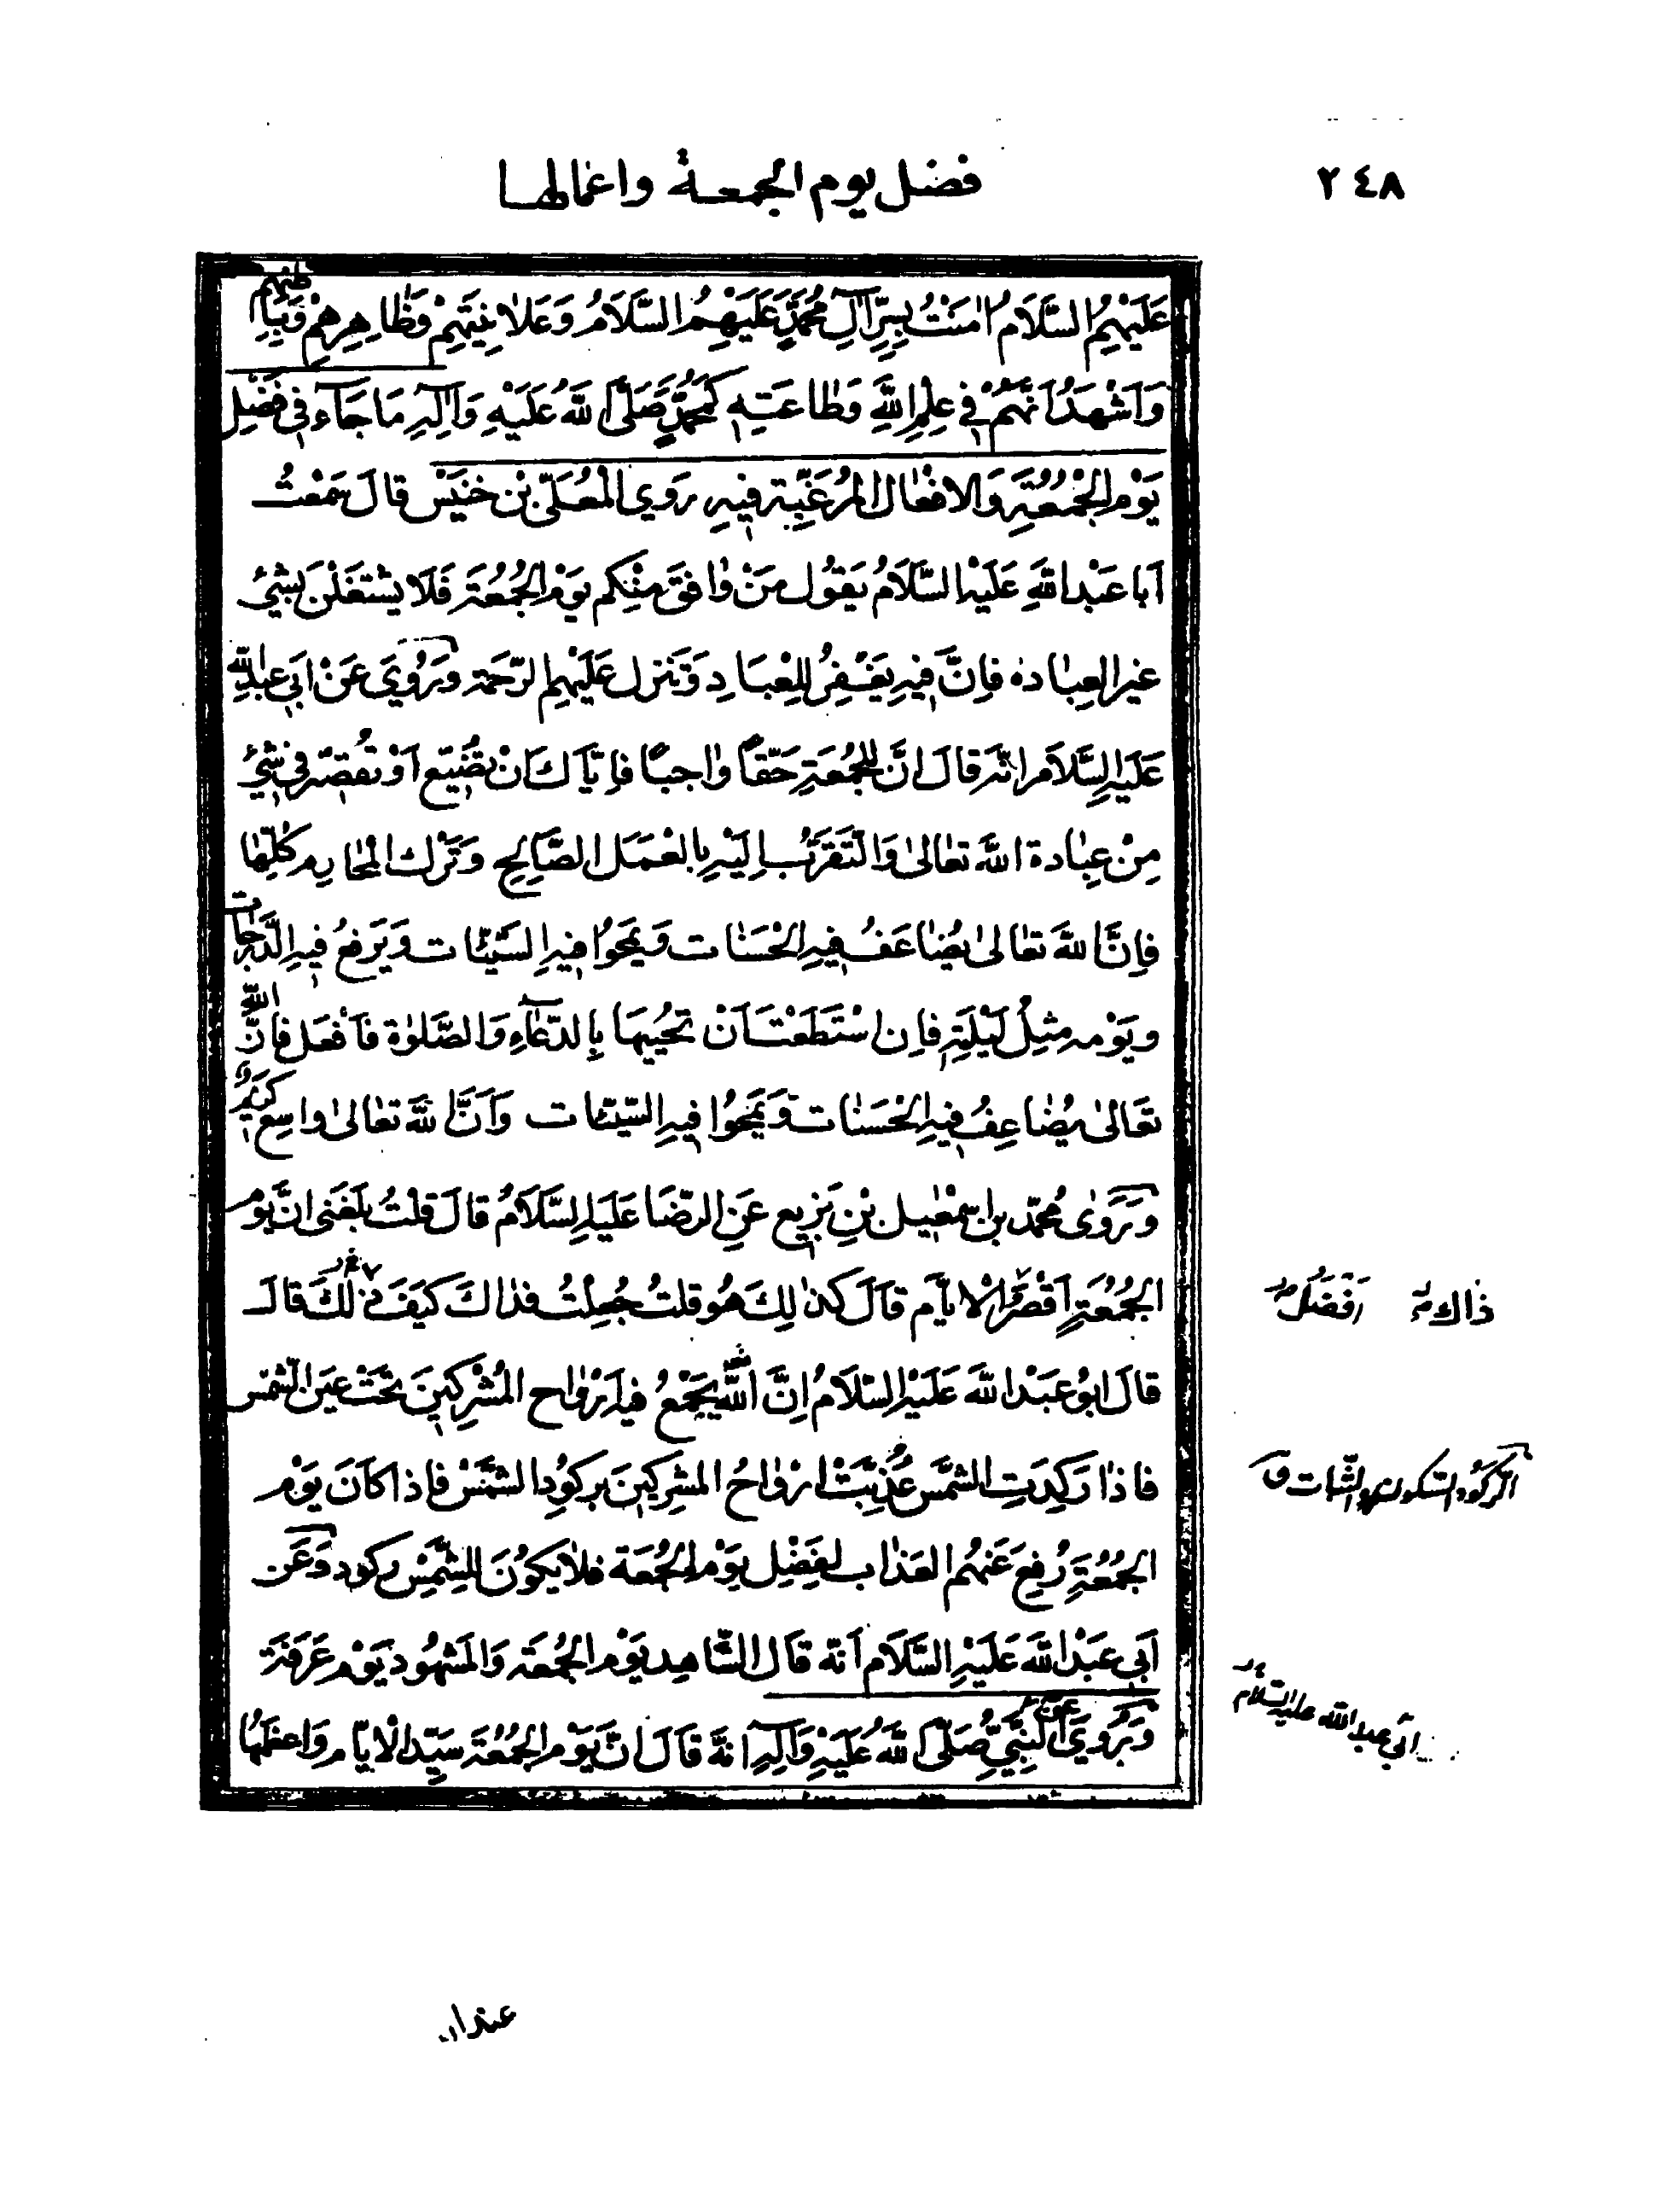 ٢٤٨
فضل يوم الجمعة واعمالها
عَلَيْهِمُ السَّلَامُ اٰمَنْتُ بِسِرِّ آلِ مُحَمَّدٍ عَلَيْهِمُ السَّلَامُ وَعَلَانِيَتِهِمْ وَظَاهِرِهِمْ وَبَاطِنِهِمْ
وَاَشْهَدُ اَنَّهُمْ فِي عِلْمِ اللهِ وَطَاعَتِهِ كَمُحَمَّدٍ صَلَّى اللهُ عَلَيْهِ وَآلِهِ مَا جَاءَ فِي فَضْلِ
يَوْمِ الجُمُعَةِ وَالافْعَال المُرَغَّبِة فِيهِ رَوى المُعَلَّى بْن خُنَيْس قالَ سَمْعْتُ
اَبَا عَبْدِ اللهِ عَلَيْهِ السَّلَامُ يَقُول مَنْ وٰافَقَ مِنْكم يَوْمَ الجُمُعَةَ فَلَا يشْتَغَلْنَ بِشَيْءٍ
غير العِبٰادة فَاِنَّ فِيهِ يَغْفِرُ لِلْعِبَادِ وَتَنزل عَلَيْهِمِ الرّحَمة وَرُوِيَ عَنْ اَبِي عَبْدِ اللهِ
عَلَيْهِ السَّلَام انّه قالَ انَّ لِلْجُمُعَةِ حَقّاً وٰاجباً فَاِيّاكَ اَنْ تضَيّع اَوْ تُقصّر فِي شَيْءٍ
مِنْ عِبٰادة اللهِ تعٰالىٰ وَالتَّقَرُّب اِلَيْهِ بِالْعَمَل الصَّالِحِ وَتَرْك المحٰارِم كُلِّهٰا
فَاِنَّ اللهَ تعٰالىٰ يُضٰاعَفُ فِيهِ الحَسَنٰات وَيَمْحُوا فِيهِ السَّيِّئٰات وَيَرفعُ فِيهِ الدَّرَجٰات
وَيَوْمه مِثْلُ لَيْلَتِهِ فَاِن اسْتَطَعْتَ اَنْ تحْيِيهَا بِالدُّعَآءِ وَالصَّلوٰة فَاَفْعَل فَاِنَّ اللهَ
تعَالىٰ يُضٰاعِفُ فِيهِ الحَسَنٰات وَيَمْحُوا فِيهِ السَّيّئٰات وَاَنَّ اللهَ تعٰالىٰ وٰاسِع كَرِيمٌ
وَرَوىٰ مُحَمّد بن اسمٰعيل بْنِ بَزِيع عَنِ الرّضَا عَلَيْهِ السَّلَامُ قالَ قلتُ بَلَغَنى انَّ يَوْم
الجُمُعَةِ اَقْصَرُ الْاَيَّام قالَ كَذٰلِكَ هُو قلتُ جُعِلْتُ فدٰاكَ كَيْفَ ذٰلكَ قالَ
ذاك
اَفْضَلُ
قالَ ابُو عَبْدِ اللهِ عَلَيْهِ السّلَامُ اِنَّ اللهَ يَجْمَعُ فيه اَرْوٰاح المُشْرِكينَ تَحْتَ عين الشّمس
فاذٰا رَكِدَتِ الشَّمْس عُذِّبَتْ ارْوٰاحُ المشرِكينَ بركُودِ الشَّمْسْ فَاِذا كَانَ يَوْم
الرُّكود السّكون والثّبات ق
الجُمُعَةِ رُفِعَ عَنهُم العَذٰاب لِفَضْلِ يَوْم الجُمُعَة فلٰا يكُونَ لِلشَّمْسِ ركود وَعَن
اَبي عَبْدِ اللهِ عَلَيْهِ السَّلَام اَنّه قالَ الشّاهِد يَوْم الجُمُعَة وَالمَشهُود يَوْم عَرَفَة
ابي عبد الله عليه السّلام
وَرُوِيَ عن النَّبِيِّ صَلَّى اللهُ عَلَيْهِ وَآلِهِ اَنّهَ قالَ انَّ يَوْم الجُمُعَةِ سَيّد الْاَيّام وَاعظَمُهَا
عندا